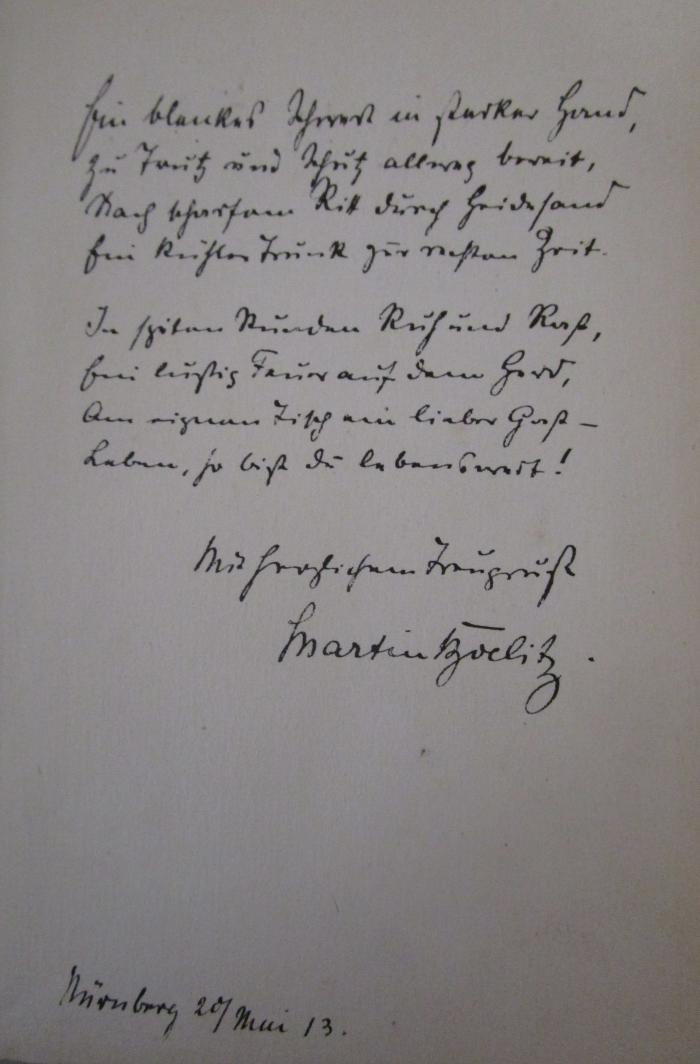 Ein blankes Schwert in starker Hand,
Zu Trutz und Schutz allweg bereit,
Nach scharfem Ritt durch Heidesand
Ein kühler Trunk zur rechten Zeit.
In späten Stunden Ruh und Rast,
Ein lustig Feuer auf dem Herd,
Am eignen Tisch ein lieber Gast –
Leben, so bist du lebenswert!
Mit herzlichem Treugruß
Martin Boelitz.
Nürnberg 20/Mai 13.